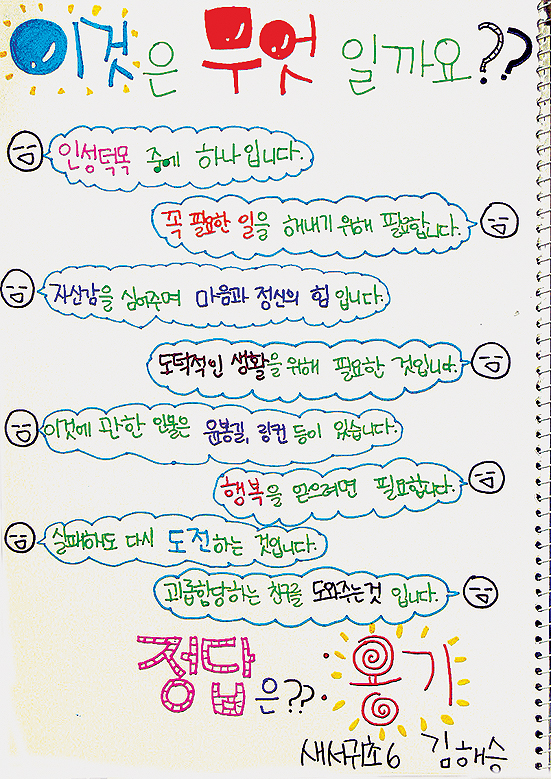 이것은 무엇일까요??
인성덕목 중에 하나입니다.
꼭 필요한 일을 해내기 위해 필요합니다.
자신감을 심어주며 마음과 정신의 힘입니다.
도덕적인 생활을 위해 필요한 것입니다.
이것에 관한 인물은 윤봉길, 링컨 등이 있습니다.
행복을 얻으려면 필요합니다.
실패해도 다시 도전하는 것입니다.
괴롭힘당하는 친구를 도와주는것 입니다.
정답은?? : 용기
새서귀초6 김해승